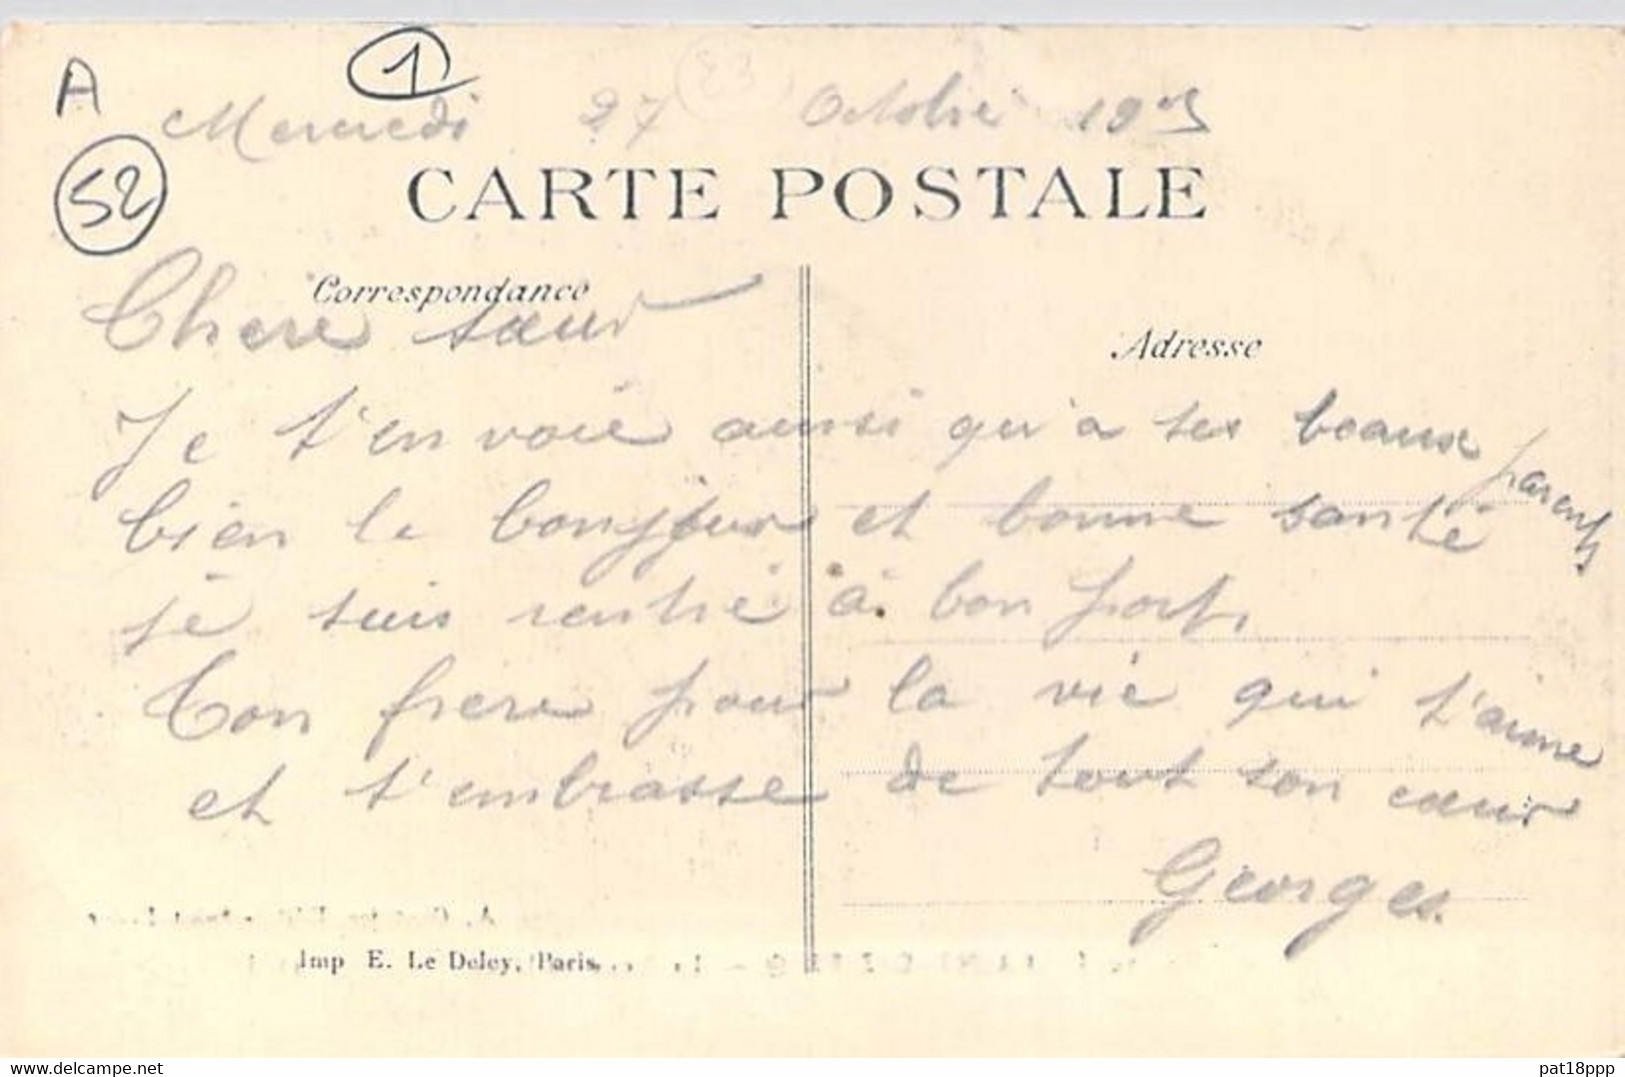 A
1
52
Mercredi 27 Octobre
CARTE POSTALE
Correspondance
Chere sœur
Adresse
Je t'envoie ainsi qu'a tes beaux parents
bien le bonjour et bonne santé
je suis rentré à bon port,
Ton frere pour la vie qui t'aime
et t'embrasse de tout son cœur
Georges.
Imp E. Le Deley, Paris
pat18ppp